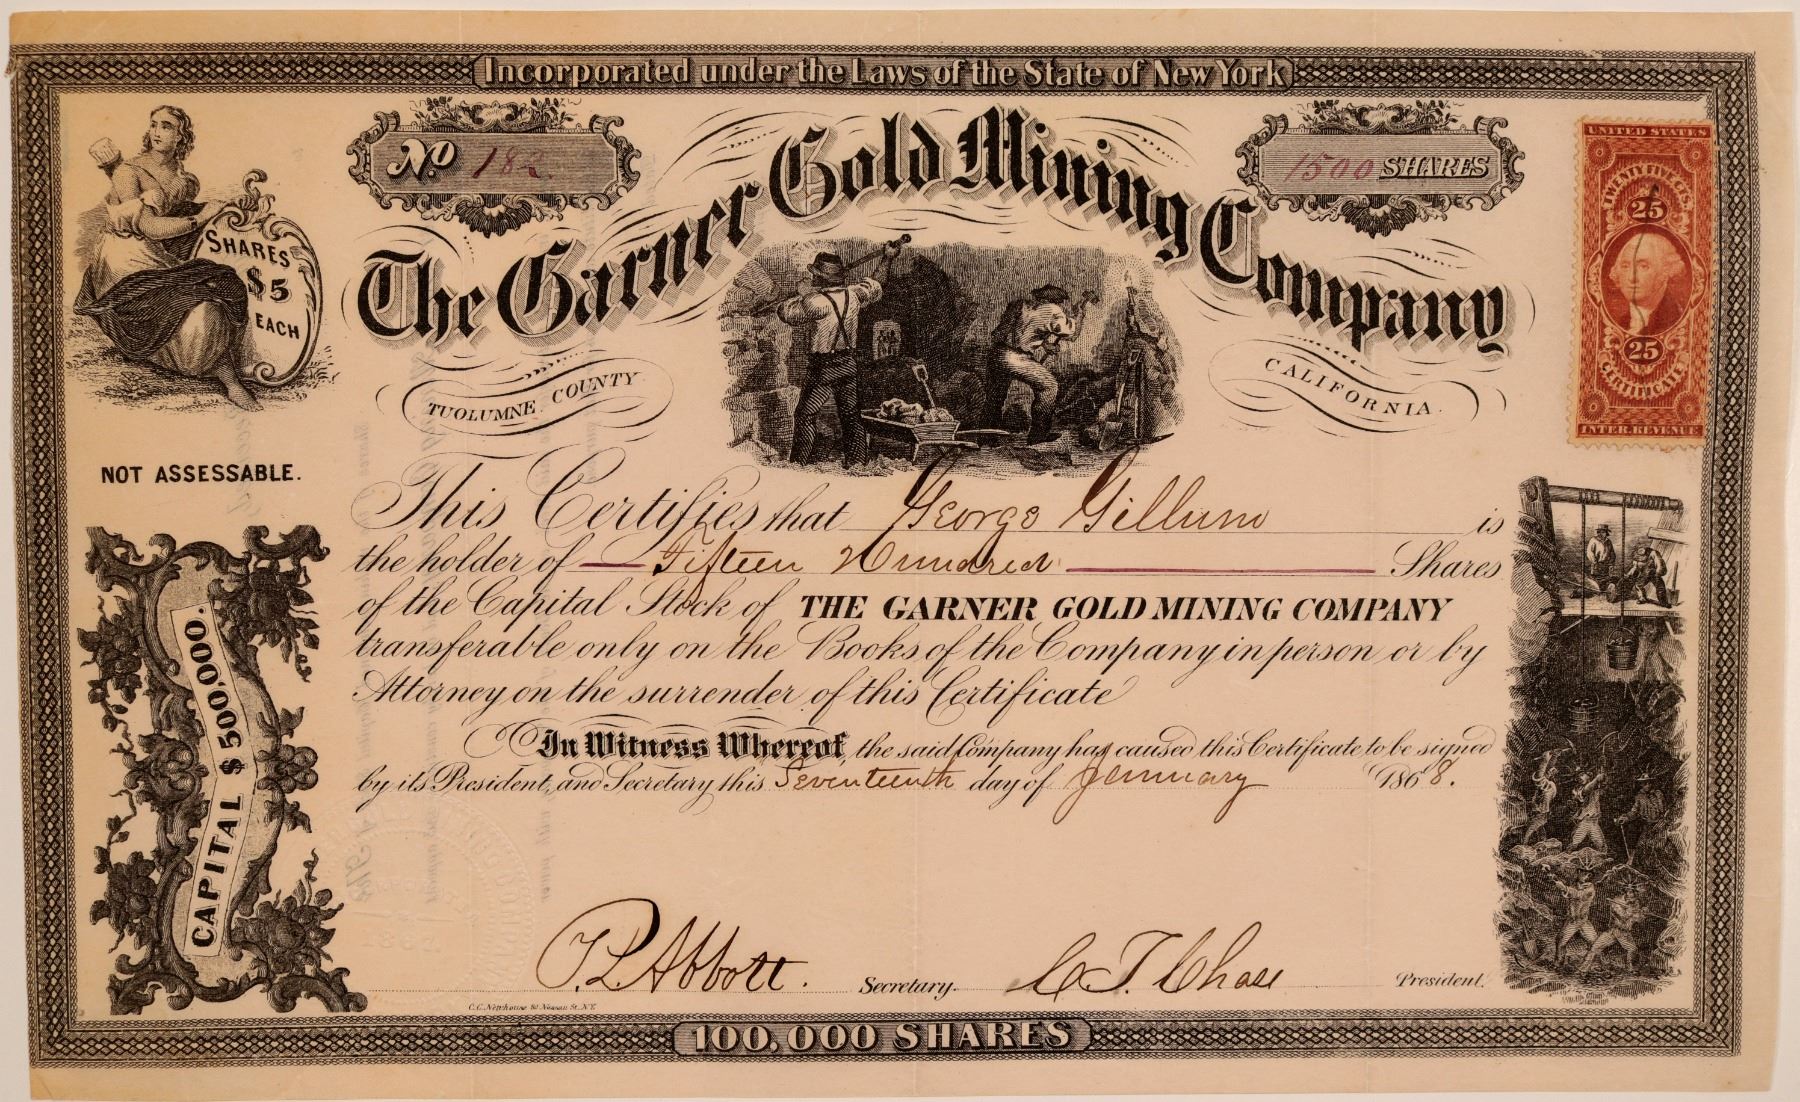 Incorporated under the Laws of the State of New York
No 182.
1500 SHARES
The Garner Gold Mining Company
SHARES
$5
EACH
TUOLUMNE COUNTY
CALIFORNIA.
UNITED STATES
TWENTY FIVE CTS.
25
25
CERTIFICATE
INTER. REVENUE
NOT ASSESSABLE.
This Certifies that George Gillum is
the holder of Fifteen Hundred Shares
of the Capital Stock of THE GARNER GOLD MINING COMPANY
transferable only on the Books of the Company in person or by
Attorney on the surrender of this Certificate
In Witness Whereof, the said Company has caused this Certificate to be signed
by its President, and Secretary this Seventeenth day of January 1868.
CAPITAL $500,000.
T. L. Abbott. Secretary. C. T. Chase President.
C.C. Newhouse 80 Nassau St. N.Y.
100,000 SHARES